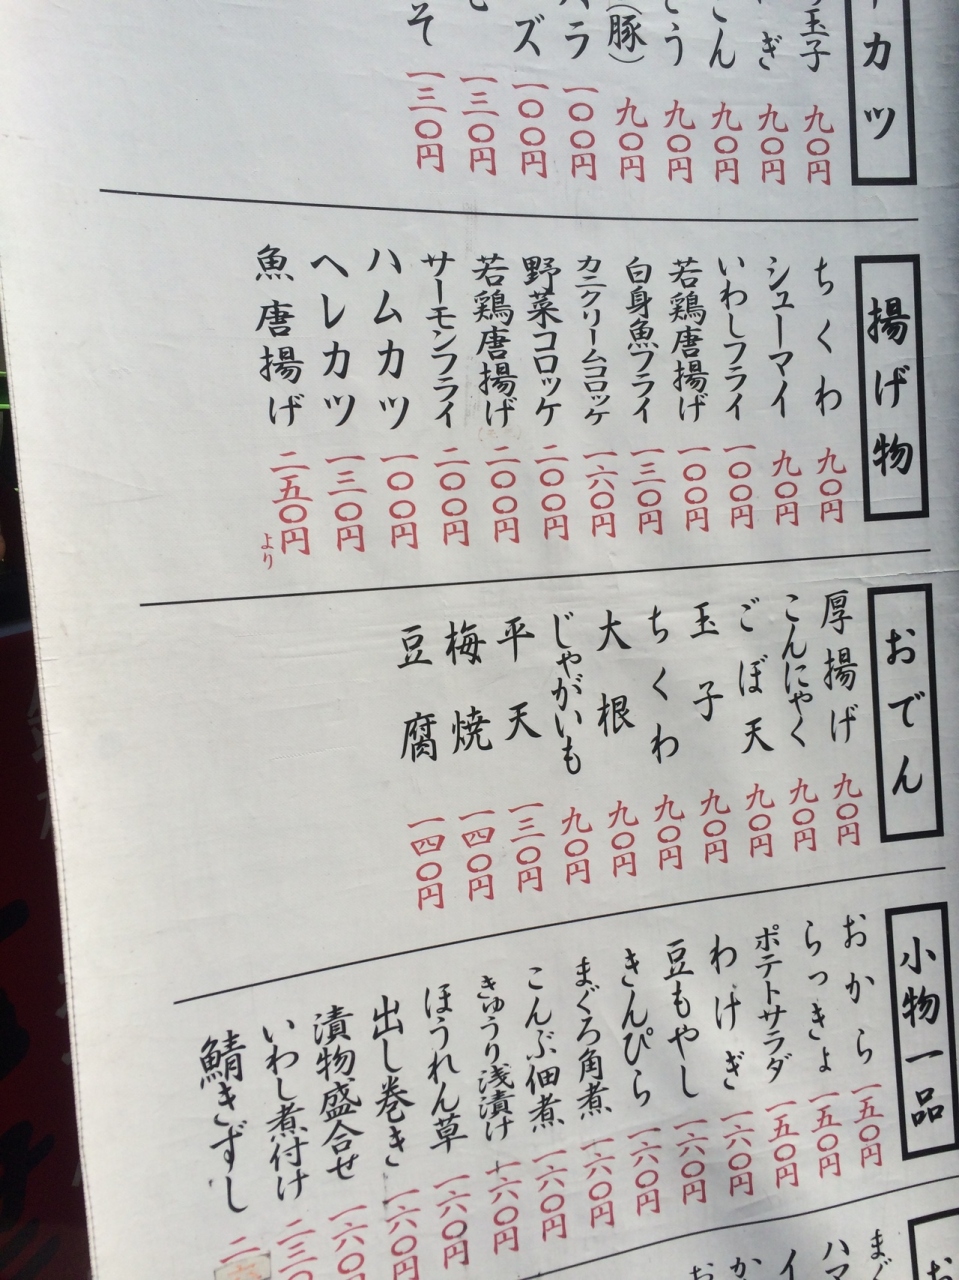 カツ
玉子 九〇円
ぎ 九〇円
ん 九〇円
う 九〇円
(豚) 九〇円
ラ 一〇〇円
ズ 一〇〇円
一三〇円
そ 一三〇円
揚げ物
ちくわ 九〇円
シューマイ 九〇円
いわしフライ 一〇〇円
若鶏唐揚げ 一〇〇円
白身魚フライ 一三〇円
カニクリームコロッケ 一六〇円
野菜コロッケ 二〇〇円
若鶏唐揚げ 二〇〇円
サーモンフライ 二〇〇円
ハムカツ 一〇〇円
ヘレカツ 一三〇円
魚唐揚げ 二五〇円より
おでん
厚揚げ 九〇円
こんにゃく 九〇円
ごぼ天 九〇円
玉子 九〇円
ちくわ 九〇円
大根 九〇円
じゃがいも 九〇円
平天 一三〇円
梅焼 一四〇円
豆腐 一四〇円
小物一品
おから 一五〇円
らっきょ 一五〇円
ポテトサラダ 一五〇円
わけぎ 一六〇円
豆もやし 一六〇円
きんぴら 一六〇円
まぐろ角煮 一六〇円
こんぶ佃煮 一六〇円
きゅうり浅漬け 一六〇円
ほうれん草 一六〇円
出し巻き 一六〇円
漬物盛合せ 一六〇円
いわし煮付け 二三〇
鯖きずし 二六
お
まぐ
ハマ
イ
か
お